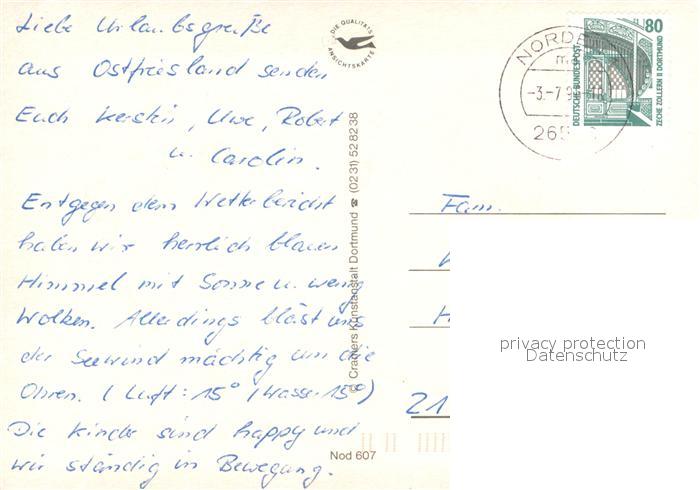 Liebe Urlaubsgrüße
aus Ostfriesland senden
Euch Kerstin, Uwe, Robert
u. Carolin.
Entgegen dem Wetterbericht
haben wir herrlich blauen
Himmel mit Sonne u. wenig
Wolken. Allerdings bläst uns
der Seewind mächtig um die
Ohren. (Luft: 15° (Wasser 15°)
Die Kinder sind happy und
wir ständig in Bewegung.
DIE QUALITÄTS
ANSICHTSKARTE
© Cramers Kunstanstalt Dortmund ☎ (02 31) 52 82 38
Nod 607
NORDE
-3.-7.9
265
80
DEUTSCHE BUNDESPOST
ZECHE ZOLLERN II DORTMUND
Fam.
21
privacy protection
Datenschutz